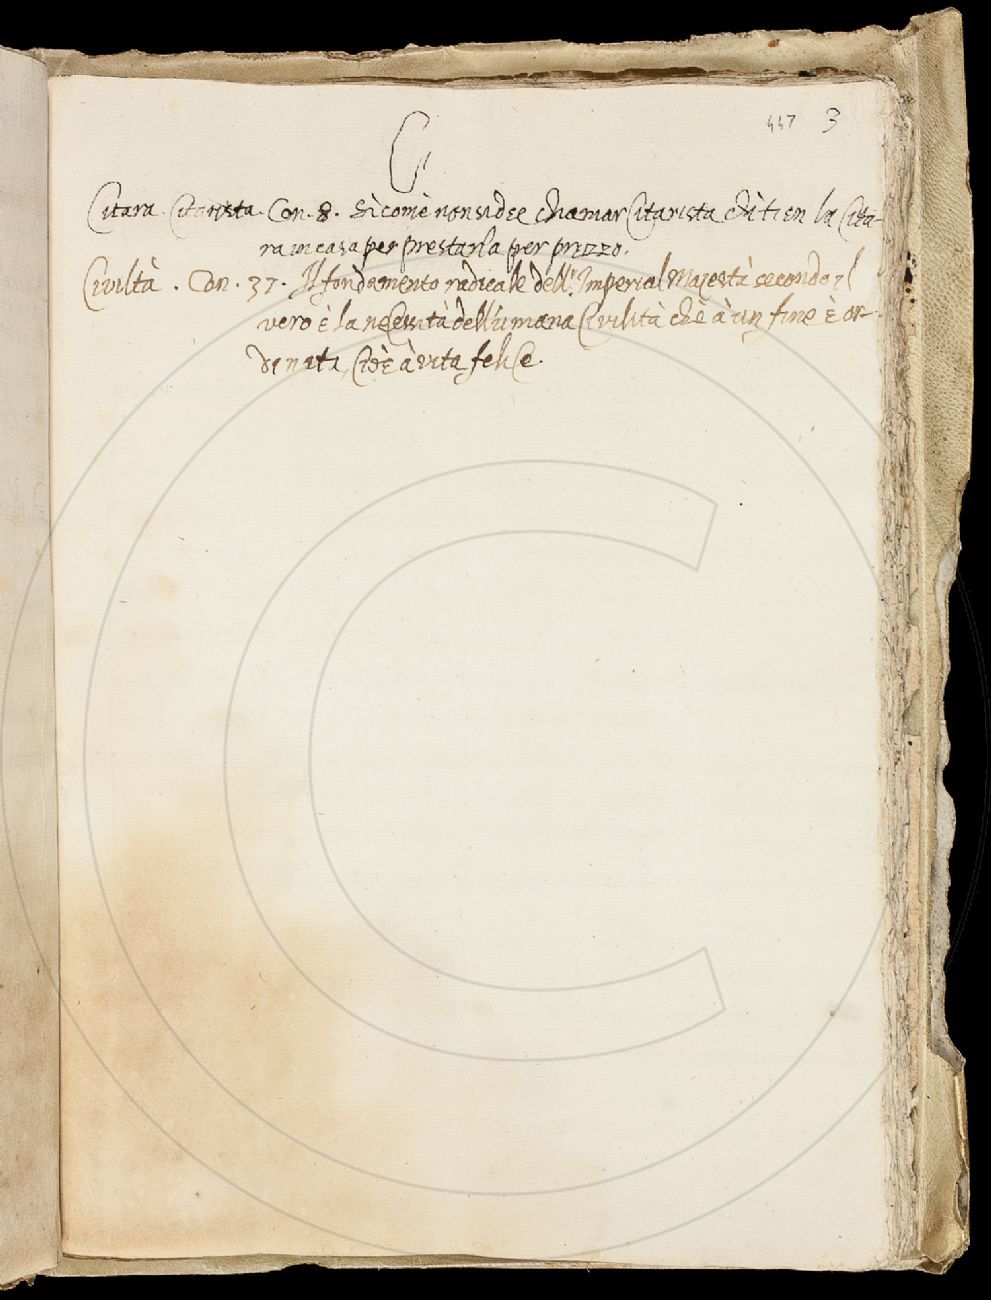 447 3
C
Citara. Citarista. Con. 8. Sì come non si dee chiamar Citarista chi tien la Cita-
ra in casa per prestarla per prezzo.
Civiltà. Con. 37. Il fondamento radicale dell'Imperial Majestà secondo il
vero è la neCessità dell'umana Civilità chè à un fine è or-
dinata, Cioè à vita feliCe.